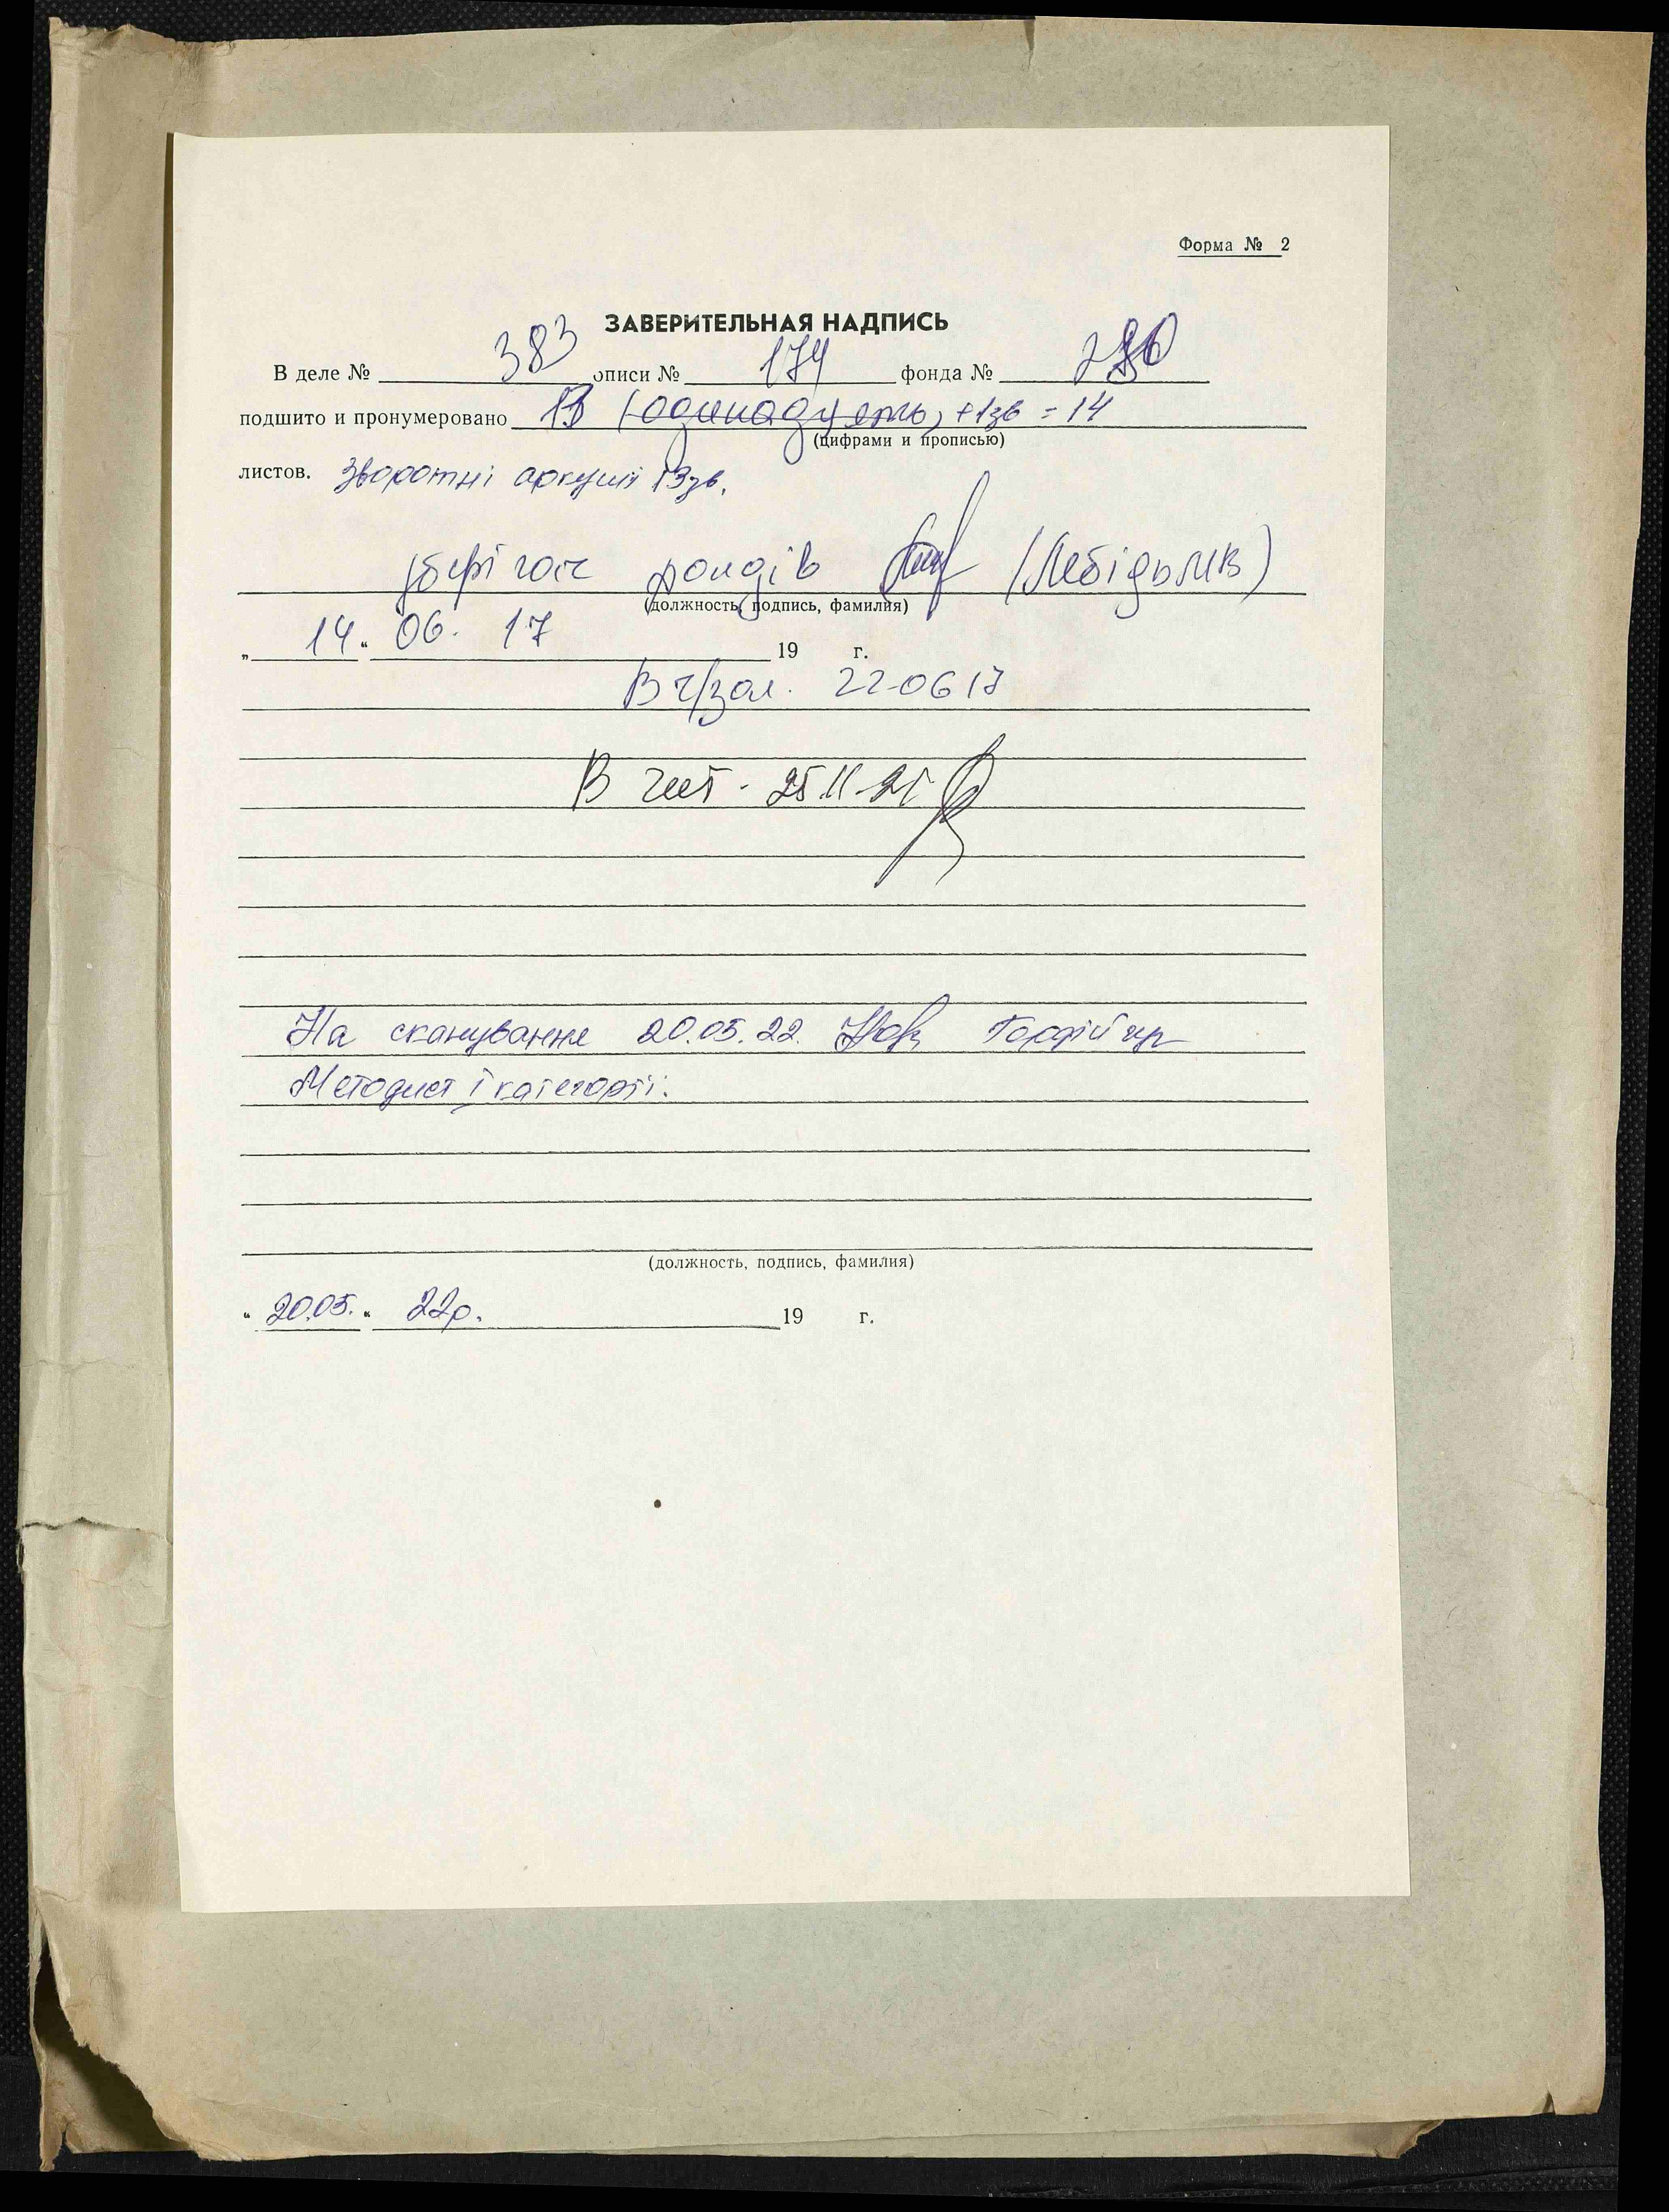 Форма № 2
ЗАВЕРИТЕЛЬНАЯ НАДПИСЬ
В деле № 383 описи № 174 фонда № 280
подшито и пронумеровано 13 (одинадцять) + 1зв = 14
(цифрами и прописью)
листов. Зворотні аркуші 13зв.
зберігач фондів (Лебідь М.В)
(должность, подпись, фамилия)
„ 14 “ 06. 17 19 г.
В ч/зал. 22-06 17
В чит. 25.11.21
На сканування 20.05.22.
Методист І категорії.
(должность, подпись, фамилия)
“ 20.05. “ 22р. 19 г.